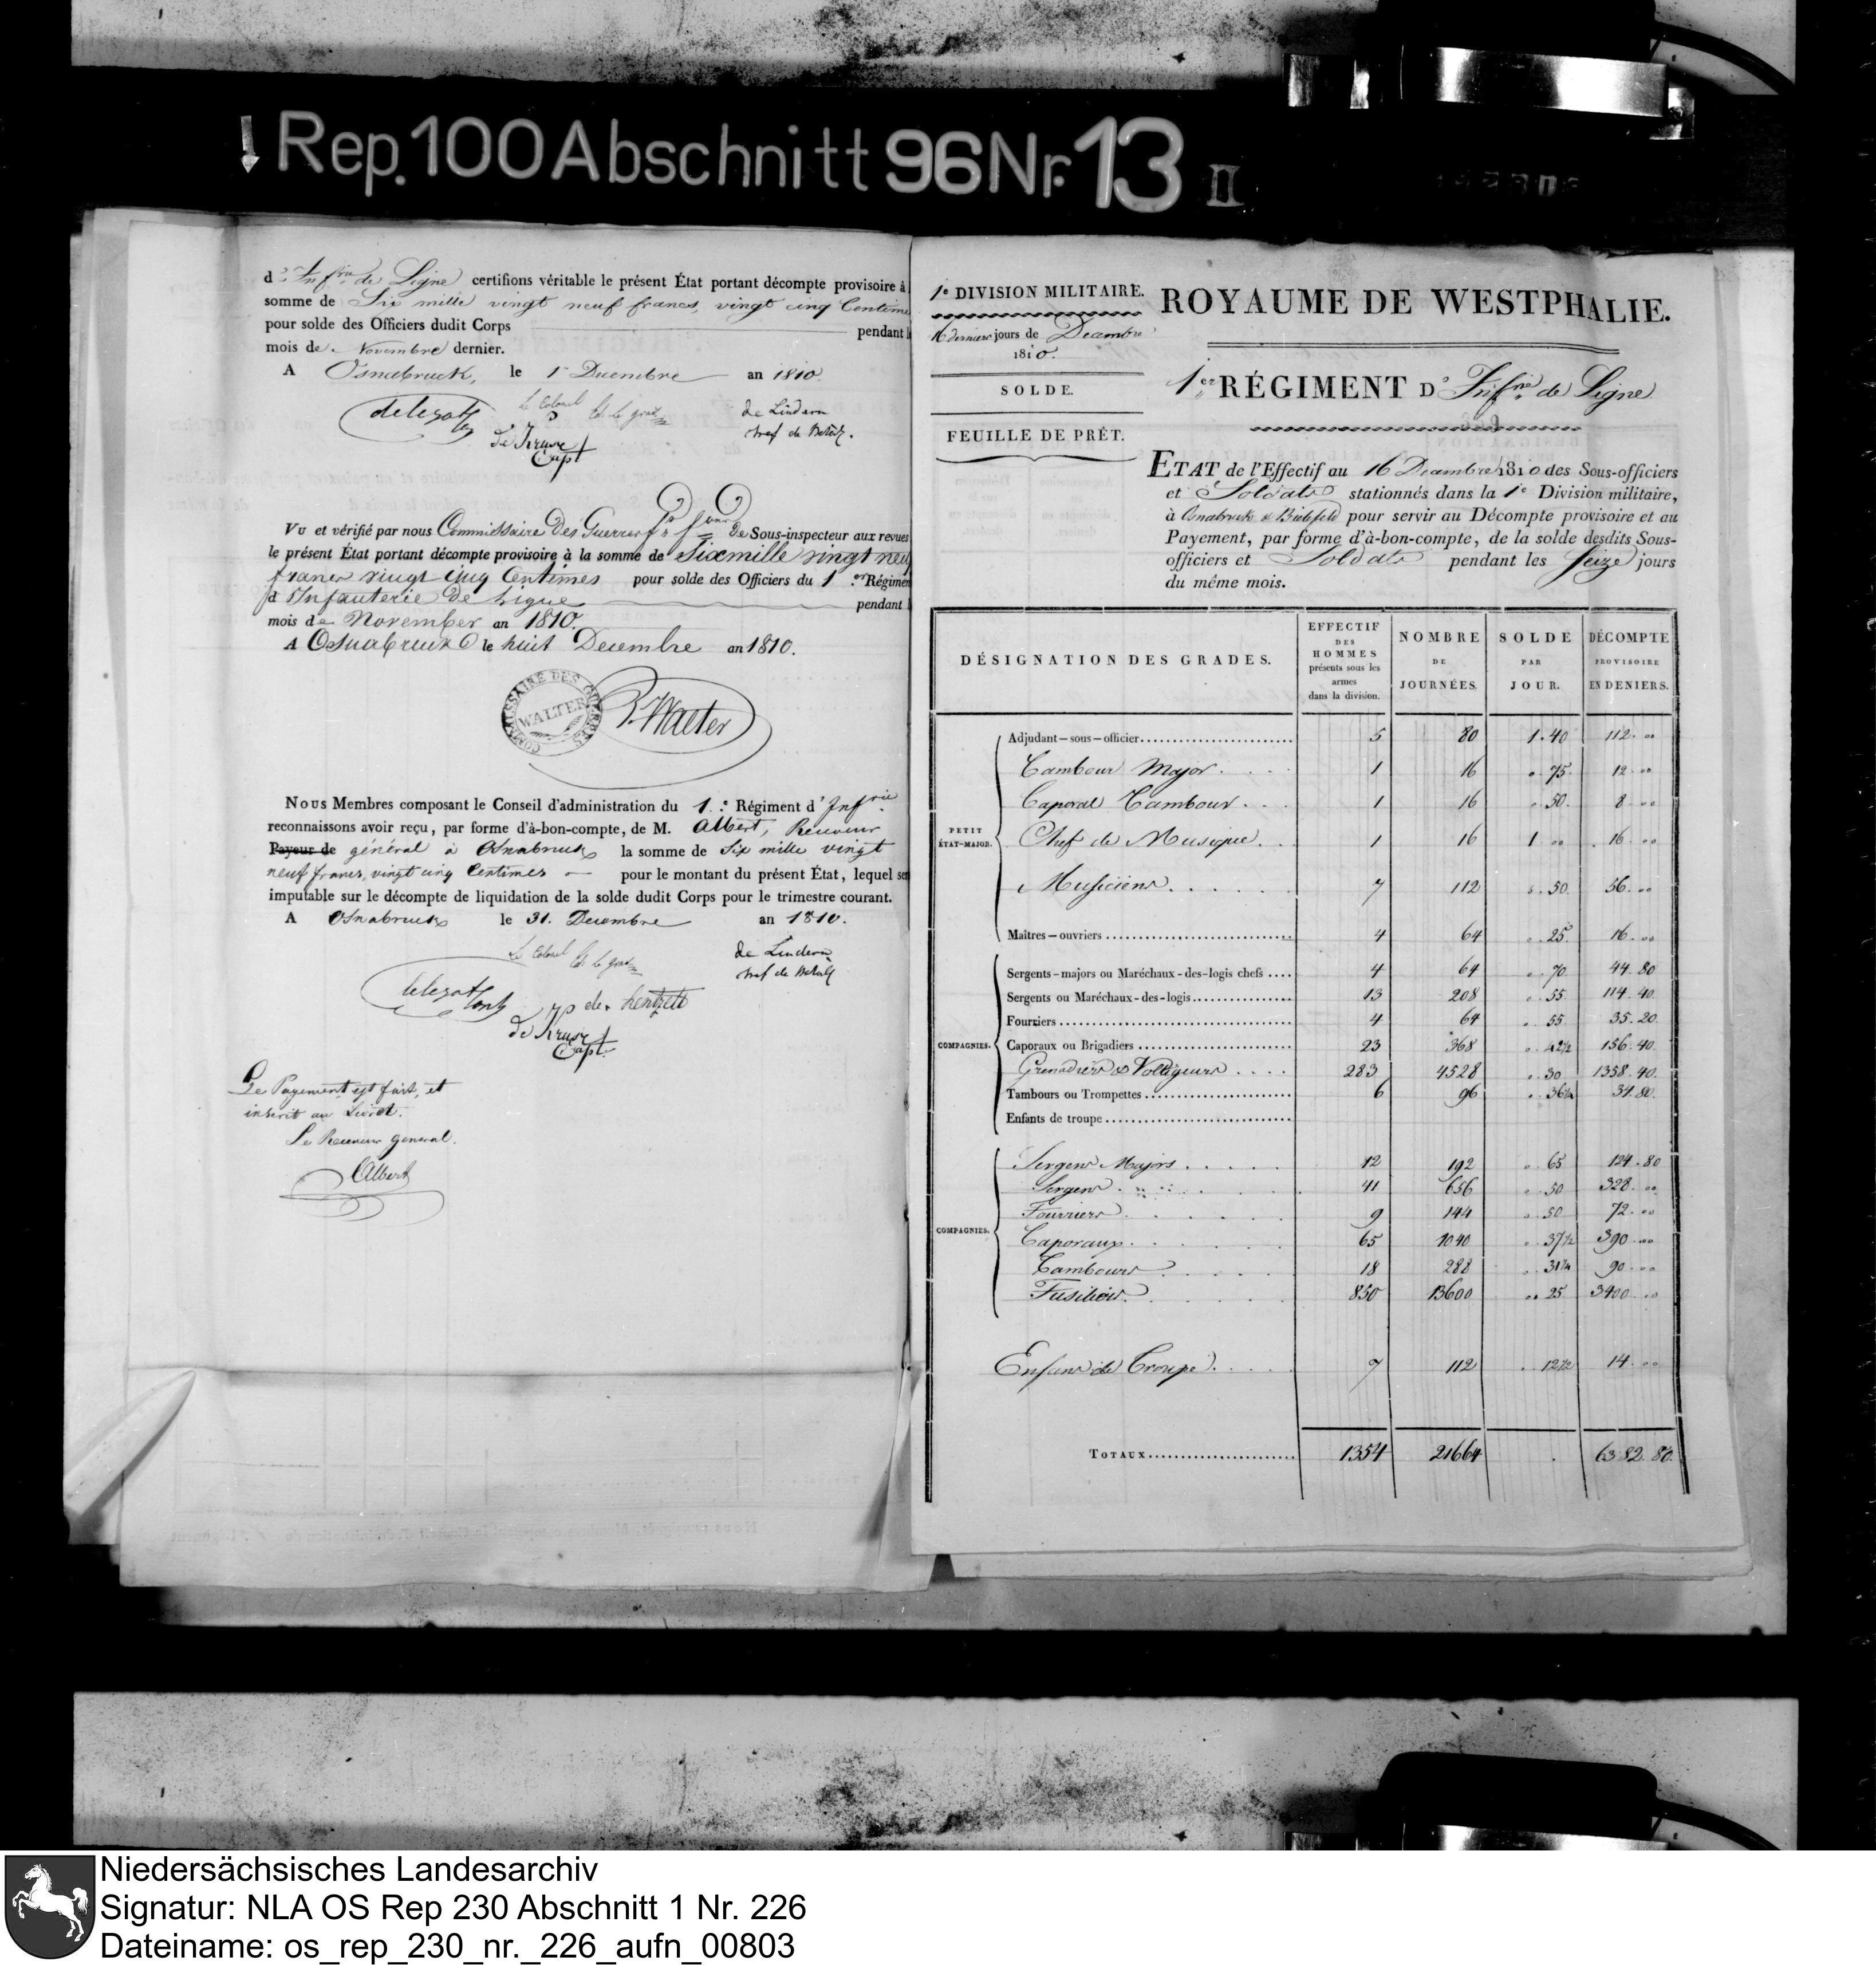 Rep. 100 Abschnitt 96 Nr. 13 II
d'Inf.rie de Ligne certifions véritable le présent État portant décompte provisoire à
somme de Six mille vingt neuf francs, vingt cinq Centime
pour solde des Officiers dudit Corps pendant l
mois de Novembre dernier.
A Osnabruck, le 1r Decembre an 1810.
Le Colonel
de Lindern
chef de Bataill.
de Kruse
Capt
Vu et vérifié par nous Commissaire Des Guerres de Sous-inspecteur aux revues
le présent État portant décompte provisoire à la somme de Sixmille vingt neuf
francs vingt cinq Centimes pour solde des Officiers du 1.er Régimen
d'Infanterie de Ligne pendant l
mois de November an 1810.
A Osnabruck le huit Decembre an 1810.
COMMISSAIRE DES GUERRES
WALTER
Walter
Nous Membres composant le Conseil d'administration du 1.e Régiment d'Infrie
reconnaissons avoir reçu, par forme d'à-bon-compte, de M. Albert, Receveur
Payeur de général à Osnabruck la somme de Six mille vingt
neuf francs, vingt cinq Centimes pour le montant du présent État, lequel se
imputable sur le décompte de liquidation de la solde dudit Corps pour le trimestre courant.
A Osnabruck le 31. Decembre an 1810.
Le Colonel
de Lindern
chef de Bataill
de Kruse
Capt.
Le Payement est fait, et
inscrit au Livret.
Le Receveur general.
Albert
1e DIVISION MILITAIRE.
16 derniers jours de Decembre
1810.
SOLDE.
FEUILLE DE PRÊT.
ROYAUME DE WESTPHALIE.
1er RÉGIMENT D'Inf.rie de Ligne
ETAT de l'Effectif au 16 Decembre 1810 des Sous-officiers
et Soldats stationnés dans la 1e Division militaire,
à Osnabruck & Bielefeld pour servir au Décompte provisoire et au
Payement, par forme d'à-bon-compte, de la solde desdits Sous-
officiers et Soldats pendant les Seize jours
du même mois.
DÉSIGNATION DES GRADES. EFFECTIF DES HOMMES présents sous les armes dans la division. NOMBRE DE JOURNÉES. SOLDE PAR JOUR. DÉCOMPTE PROVISOIRE EN DENIERS.
PETIT ÉTAT-MAJOR.
Adjudant-sous-officier 5 80 1.40 112. "
Tambour Major 1 16 " 75. 12 "
Caporal Tambour 1 16 " 50. 8 "
Chef de Musique 1 16 1 " 16 "
Musiciens 7 112 " 50 56. "
Maîtres-ouvriers 4 64 " 25 16. "
COMPAGNIES.
Sergents-majors ou Maréchaux-des-logis chefs 4 64 " 70 44.80
Sergents ou Maréchaux-des-logis 13 208 " 55 114.40.
Fourriers 4 64 " 55 35.20.
Caporaux ou Brigadiers 23 368 " 42½ 156.40.
Grenadiers & Voltigeurs 283 4528 " 30 1358.40.
Tambours ou Trompettes 6 96 " 36¼ 34.80.
Enfants de troupe
COMPAGNIES.
Sergens Majors 12 192 " 65 124.80
Sergens 41 656 " 50 328. "
Fourriers 9 144 " 50 72. "
Caporaux 65 1040 " 37½ 390 "
Tambours 18 288 " 31¼ 90 "
Fusiliers 850 13600 " 25 3400 "
Enfans de Troupe 7 112 " 12½ 14 "
TOTAUX 1354 21664 6382.80.
Niedersächsisches Landesarchiv
Signatur: NLA OS Rep 230 Abschnitt 1 Nr. 226
Dateiname: os_rep_230_nr._226_aufn_00803